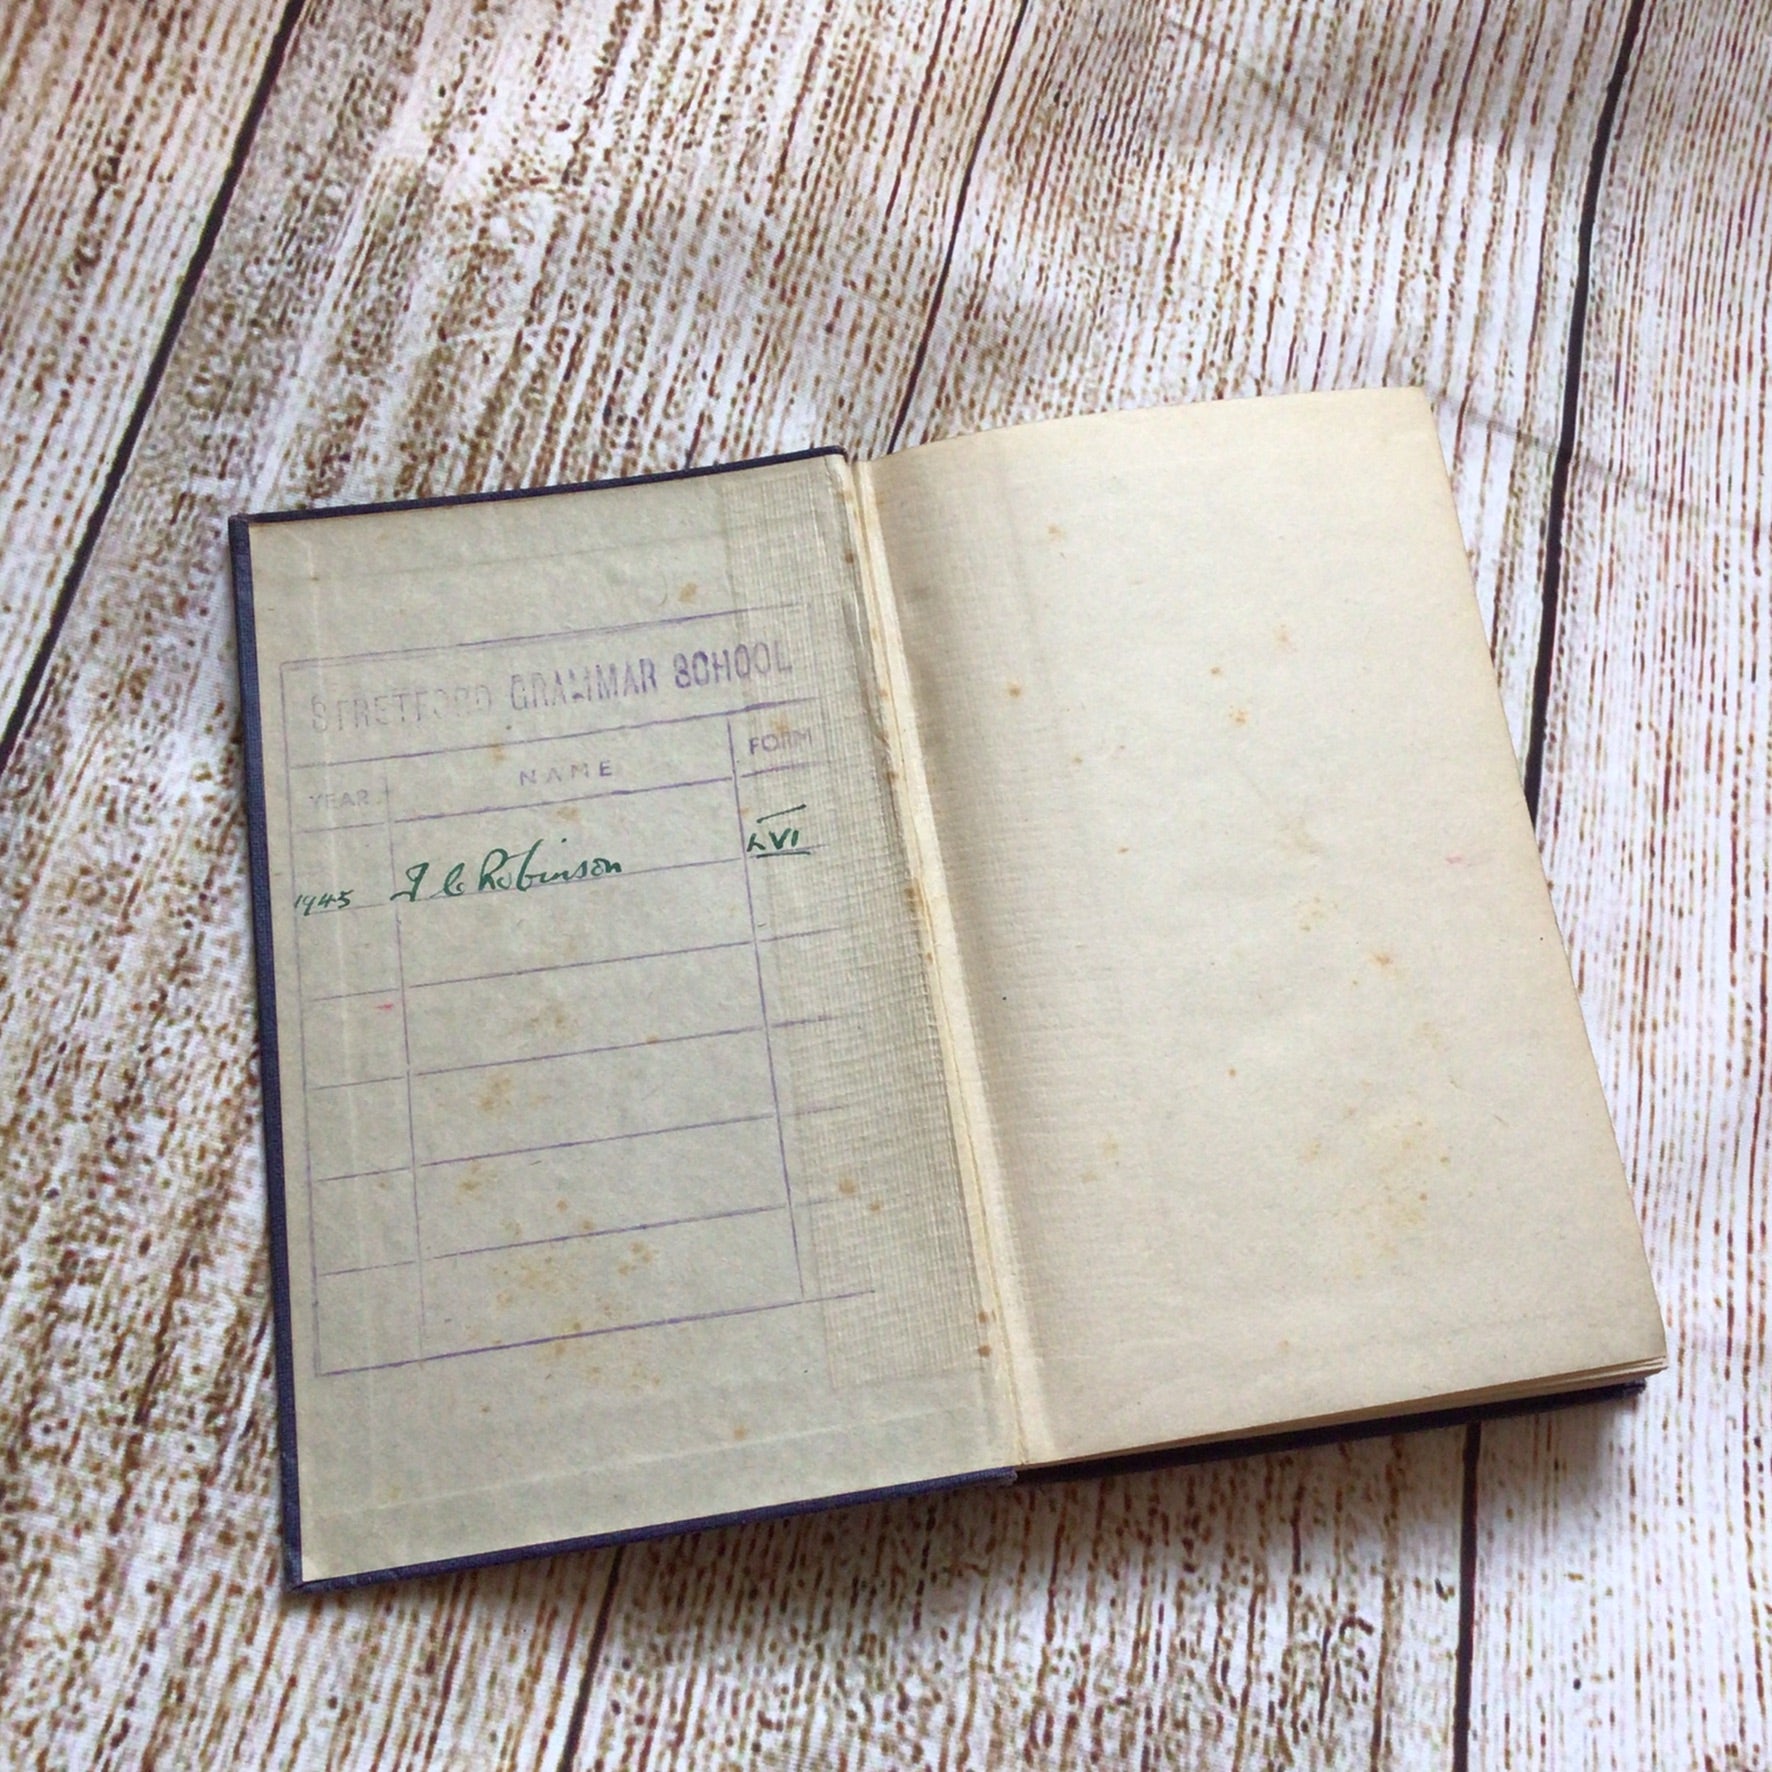 STRETFORD GRAMMAR SCHOOL
YEAR NAME FORM
1945 Robinson LVI